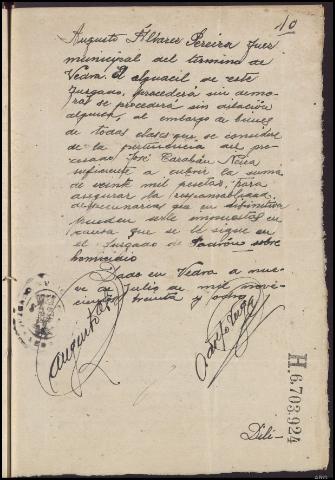 10
Augusto Álvarez Pereira Juez
municipal del termino de
Vedra. El alguacil de este
Juzgado, procederá sin demo-
ra se procederá sin dilación
alguna, al embargo de bienes
de todas clases que se consideren
de la pertenencia del pro-
cesado José Carabán Neira
suficiente a cubrir la suma
de veinte mil pesetas, para
asegurar la responsabilidad
pecuniarias que en definitiva
puedan serle impuestas en
causa que se le sigue en
el Juzgado de Padrón sobre
homicidio
Dado en Vedra a nue-
ve de Julio de mil nove-
cientos treinta y ocho
Augusto
H.6.703.924
Dili-